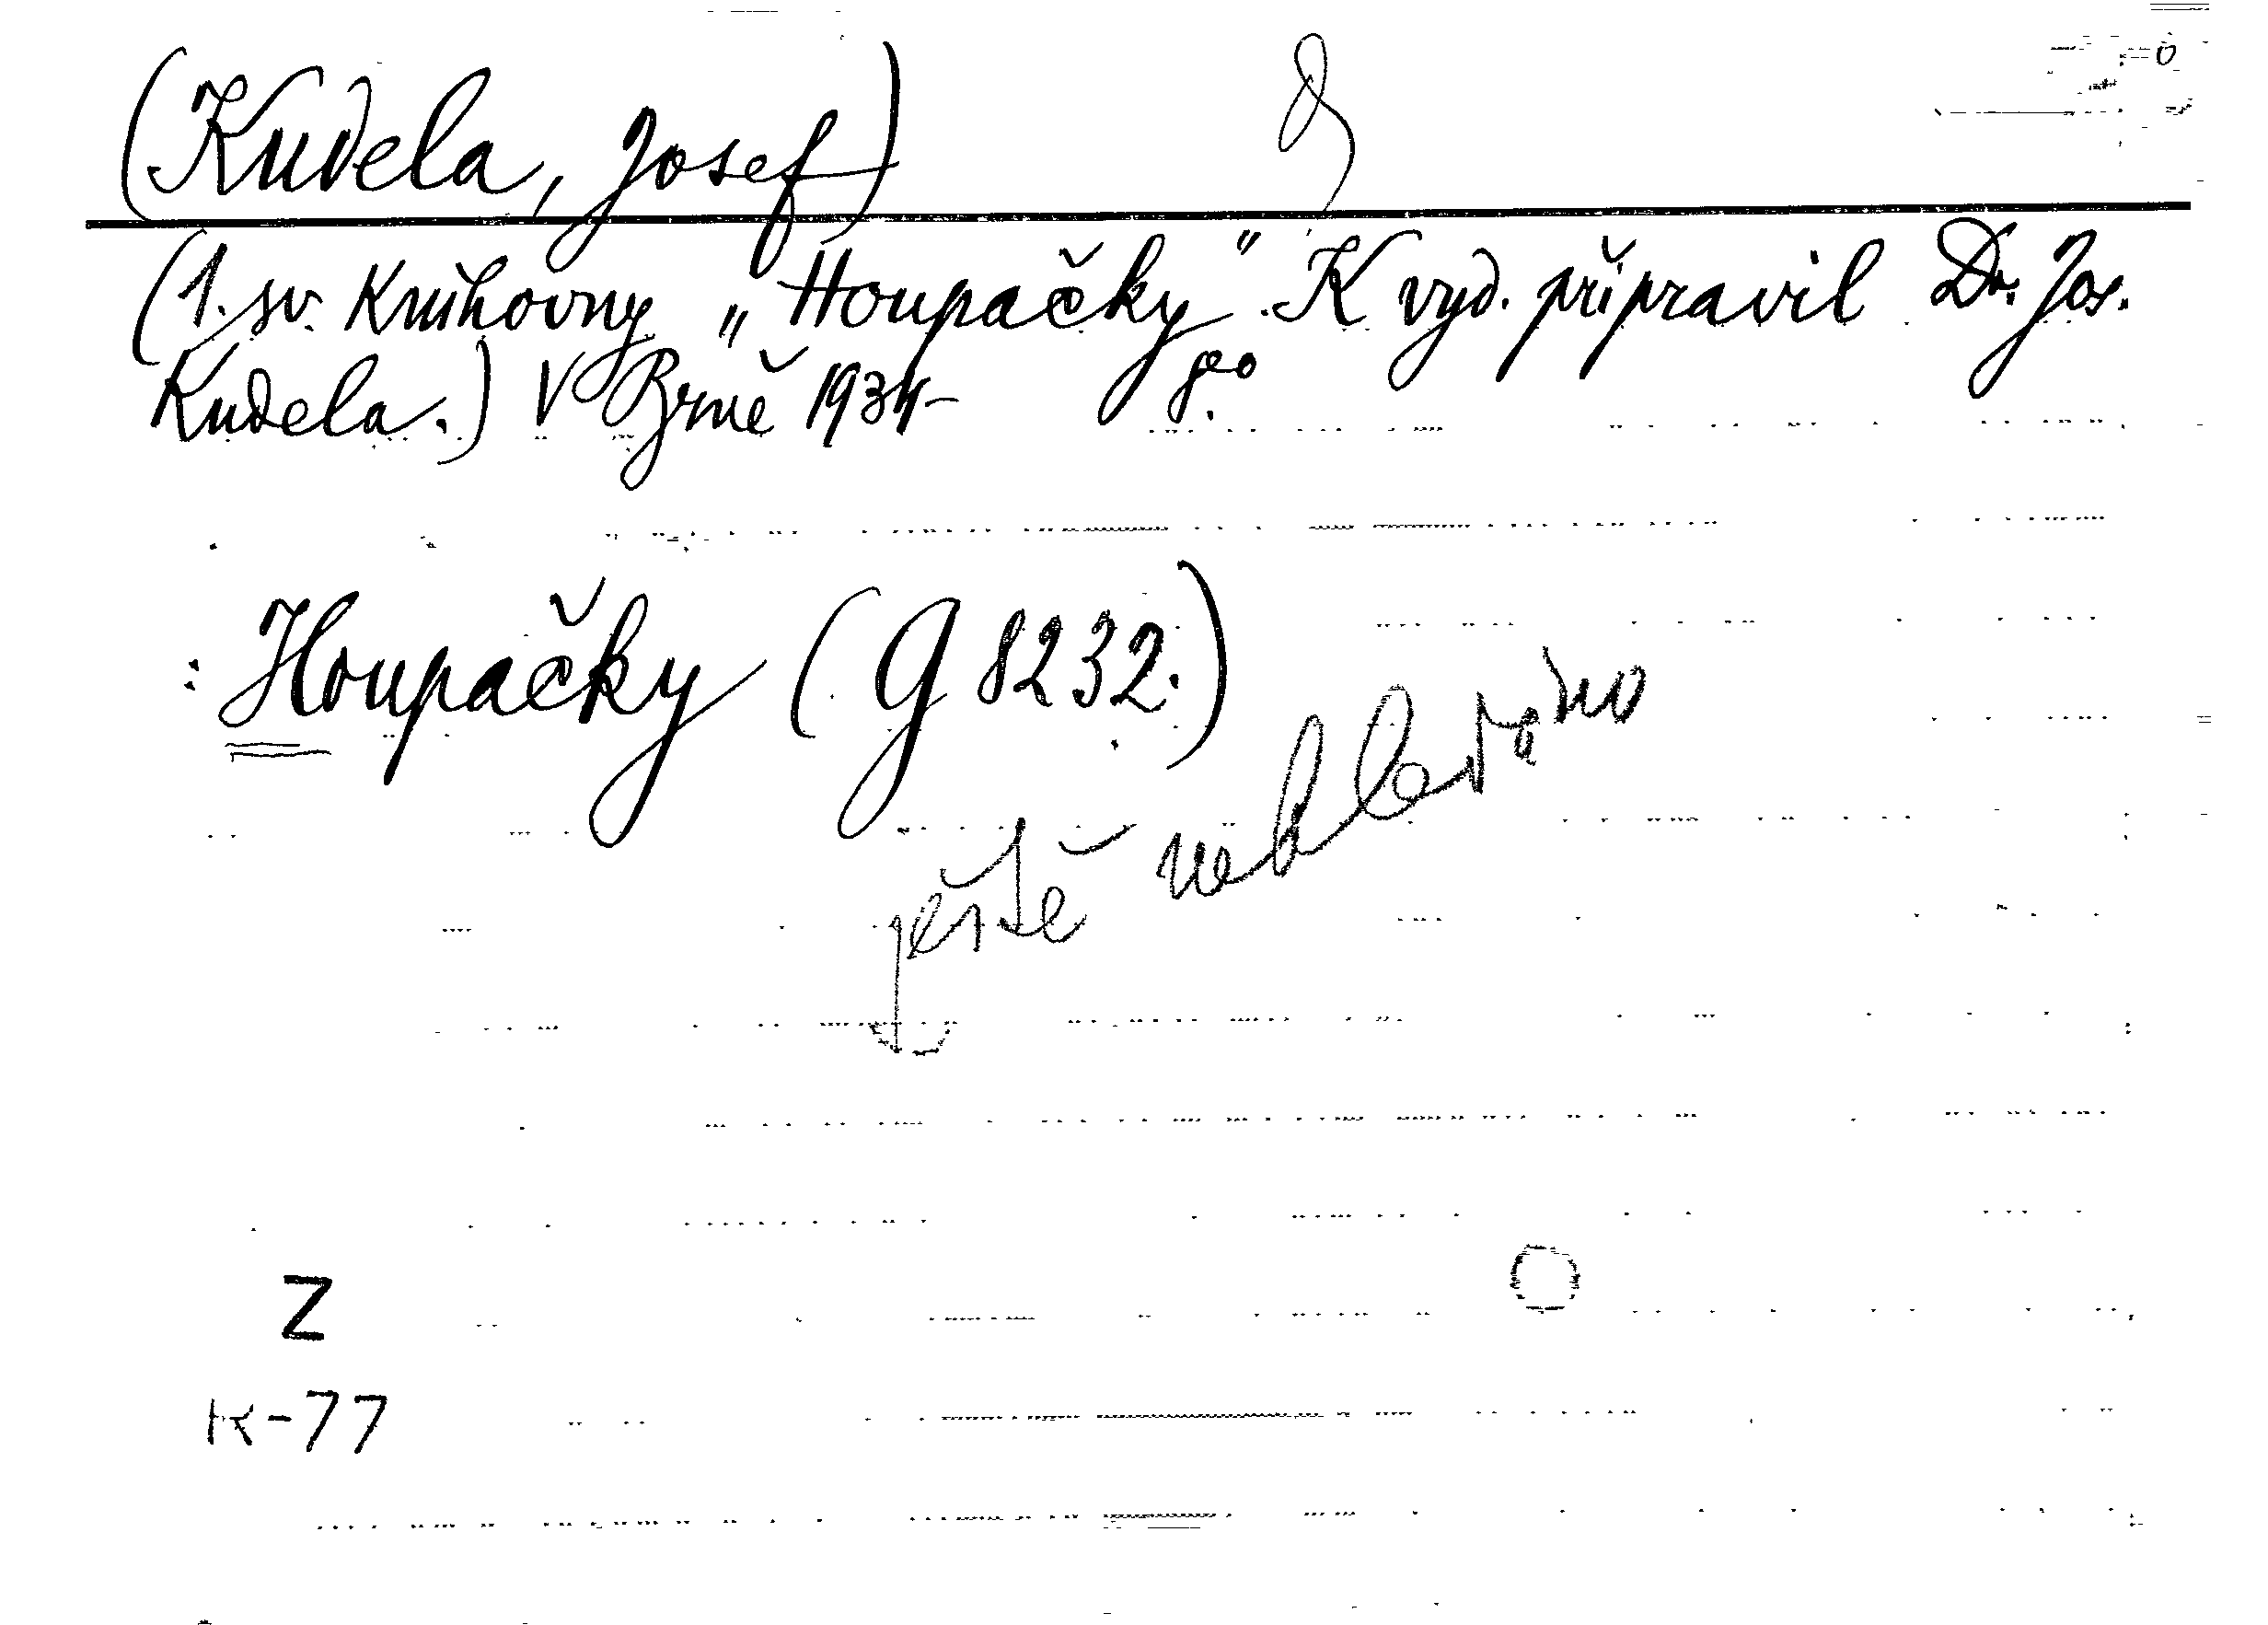 (Kudela, Josef)
(1. sv. Knihovny „Houpačky". K vyd. připravil Dr. Jos.
Kudela.) V Brně 1934- 8°.
: Houpačky (G 8232.)
ještě nehledáno
Z
K-77